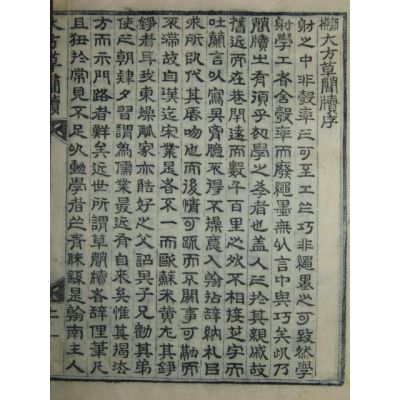 新撰大方草簡牘序
射之中非彀率之可至工之巧非繩墨之可致然學
射學工者舍彀率而廢繩墨無以言中與巧矣
簡牘之有須乎初學之者也盖人之於其親戚故
舊近而在巷閈遠而數千百里之外不相接芝宇而
吐蘭言以寫胷臆不得不操毫入翰拈辭納札
來所欲代其唇吻也而後情可疏而不關事可融而
不滯故自漢迄宋業是者不一而歐蘇米黄尤其錚
錚者耳我東操觚家亦酷好之父詔其子兄勖其弟
使之朝肄夕習謂為儒業最近有自來矣惟其揭法
方而示門路者難矣近世所謂草簡牘者辭俚筆凡
且狃於常見不足以勸學者之青是翰南主人
大方草簡牘